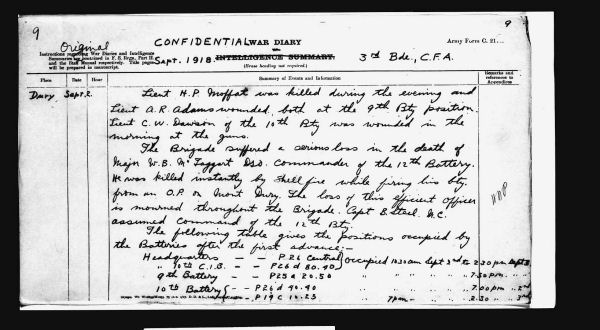 9
9
Original
CONFIDENTIAL
WAR DIARY
or
INTELLIGENCE SUMMARY.
(Erase heading not required.)
Army Form C. 21
Instructions regarding War Diaries and Intelligence
Summaries are contained in F. S. Regs., Part II.
and the Staff Manual respectively. Title pages
will be prepared in manuscript.
Sept. 1918.
3rd Bde., C.F.A.
Place
Date
Hour
Summary of Events and Information
Remarks and
references to
Appendices
Dury Sept 2. Lieut H.P. Moffat was killed during the evening and
Lieut A.R. Adams wounded both at the 9th Bty position.
Lieut C.W. Dawson of the 10th Bty was wounded in the
morning at the guns.
The Brigade suffered a serious loss in the death of
Major W.B. McTaggart DSO. Commander of the 12th Battery.
He was killed instantly by shell fire while firing his bty.
from an O.P. on Mont Dury. The loss of this efficient officer
is mourned throughout the Brigade. Capt B. Steel M.C.
assumed command of the 12th Bty.
The following table gives the positions occupied by
the Batteries after the first advance:—
Headquarters — — P26 Central occupied 10.30 am Sept 2nd to 2.30 pm Sept 3.
" 10th C.I.B. - - P26d 80.40
9th Battery - - P25a 20.50 " " " " 7.30 pm "
10th Battery - - P26d 40.40 " " " " 7.00 pm " 2nd
- P19c 10.25 " 7 pm " " 2.30 " 3rd